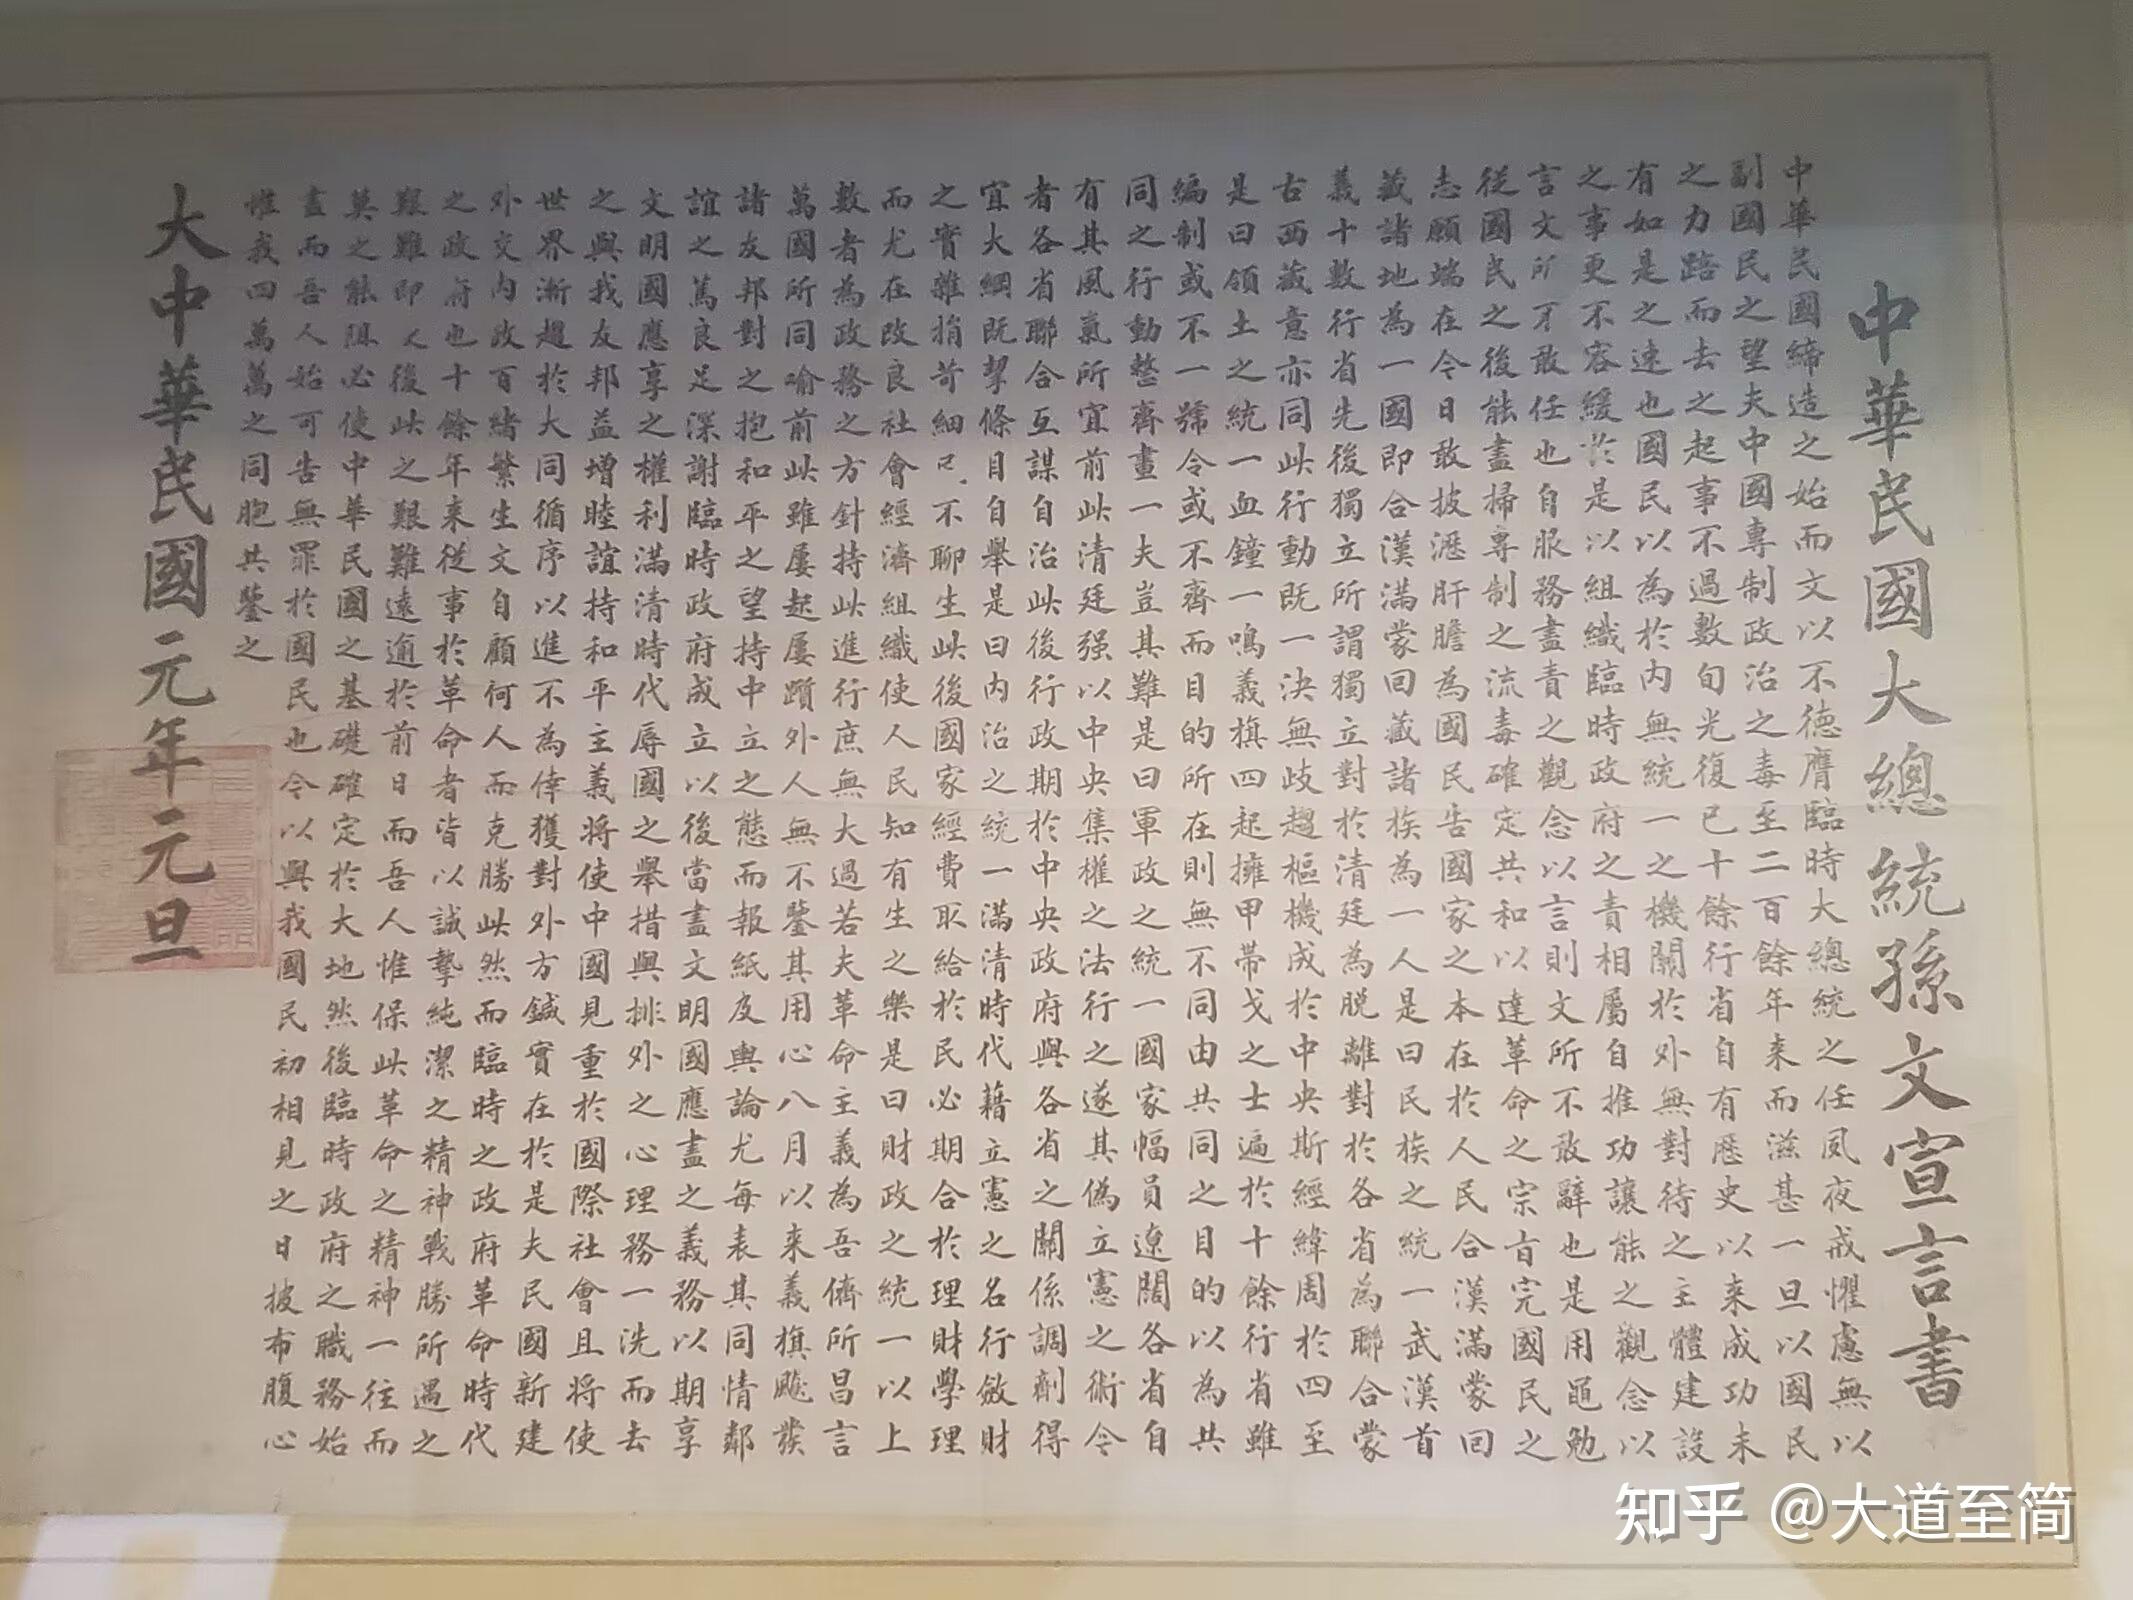 中華民國大總統孫文宣言書
中華民國締造之始而文以不德膺臨時大總統之任夙夜戒懼慮無以
副國民之望夫中國專制政治之毒至二百餘年來而滋甚一旦以國民
之力踣而去之起事不過數旬光復已十餘行省自有歷史以來成功未
有如是之速也國民以為於內無統一之機關於外無對待之主體建設
之事更不容緩於是以組織臨時政府之責相屬自推功讓能之觀念以
言文所不敢任也自服務盡責之觀念以言則文所不敢辭也是用黽勉
從國民之後能盡掃專制之流毒確定共和以達革命之宗旨完國民之
志願端在今日敢披瀝肝膽為國民告國家之本在於人民合漢滿蒙回
藏諸地為一國即合漢滿蒙回藏諸族為一人是曰民族之統一武漢首
義十數行省先後獨立所謂獨立對於清廷為脫離對於各省為聯合蒙
古西藏意亦同此行動既一決無歧趨樞機成於中央斯經緯周於四至
是曰領土之統一血鐘一鳴義旗四起擁甲帶戈之士遍於十餘行省雖
編制或不一號令或不齊而目的所在則無不同由共同之目的以為共
同之行動整齊畫一夫豈其難是曰軍政之統一國家幅員遼闊各省自
有其風氣所宜前此清廷强以中央集權之法行之遂其偽立憲之術今
者各省聯合互謀自治此後行政期於中央政府與各省之關係調劑得
宜大綱既挈條目自舉是曰內治之統一滿清時代藉立憲之名行斂財
之實雜捐苛細已不聊生此後國家經費取給於民必期合於理財學理
而尤在改良社會經濟組織使人民知有生之樂是曰財政之統一以上
數者為政務之方針持此進行庶無大過若夫革命主義為吾儕所昌言
萬國所同喻前此雖屢起屢躓外人無不鑒其用心八月以來義旗飈發
諸友邦對之抱和平之望持中立之態而報紙及輿論尤每表其同情鄰
誼之篤良足深謝臨時政府成立以後當盡文明國應盡之義務以期享
文明國應享之權利滿清時代辱國之舉措與排外之心理務一洗而去
之與我友邦益增睦誼持和平主義將使中國見重於國際社會且將使
世界漸趨於大同循序以進不為倖獲對外方鍼實在於是夫民國新建
外交內政百緒繁生文自顧何人而克勝此然而臨時之政府革命時代
之政府也十餘年來從事於革命者皆以誠摯純潔之精神戰勝所遇之
艱難即後此之艱難遠逾於前日而吾人惟保此革命之精神一往而
莫之能阻必使中華民國之基礎確定於大地然後臨時政府之職務始
盡而吾人始可告無罪於國民也今以與我國民初相見之日披布腹心
惟我四萬萬之同胞共鑒之
大中華民國元年元旦
知乎 @大道至简